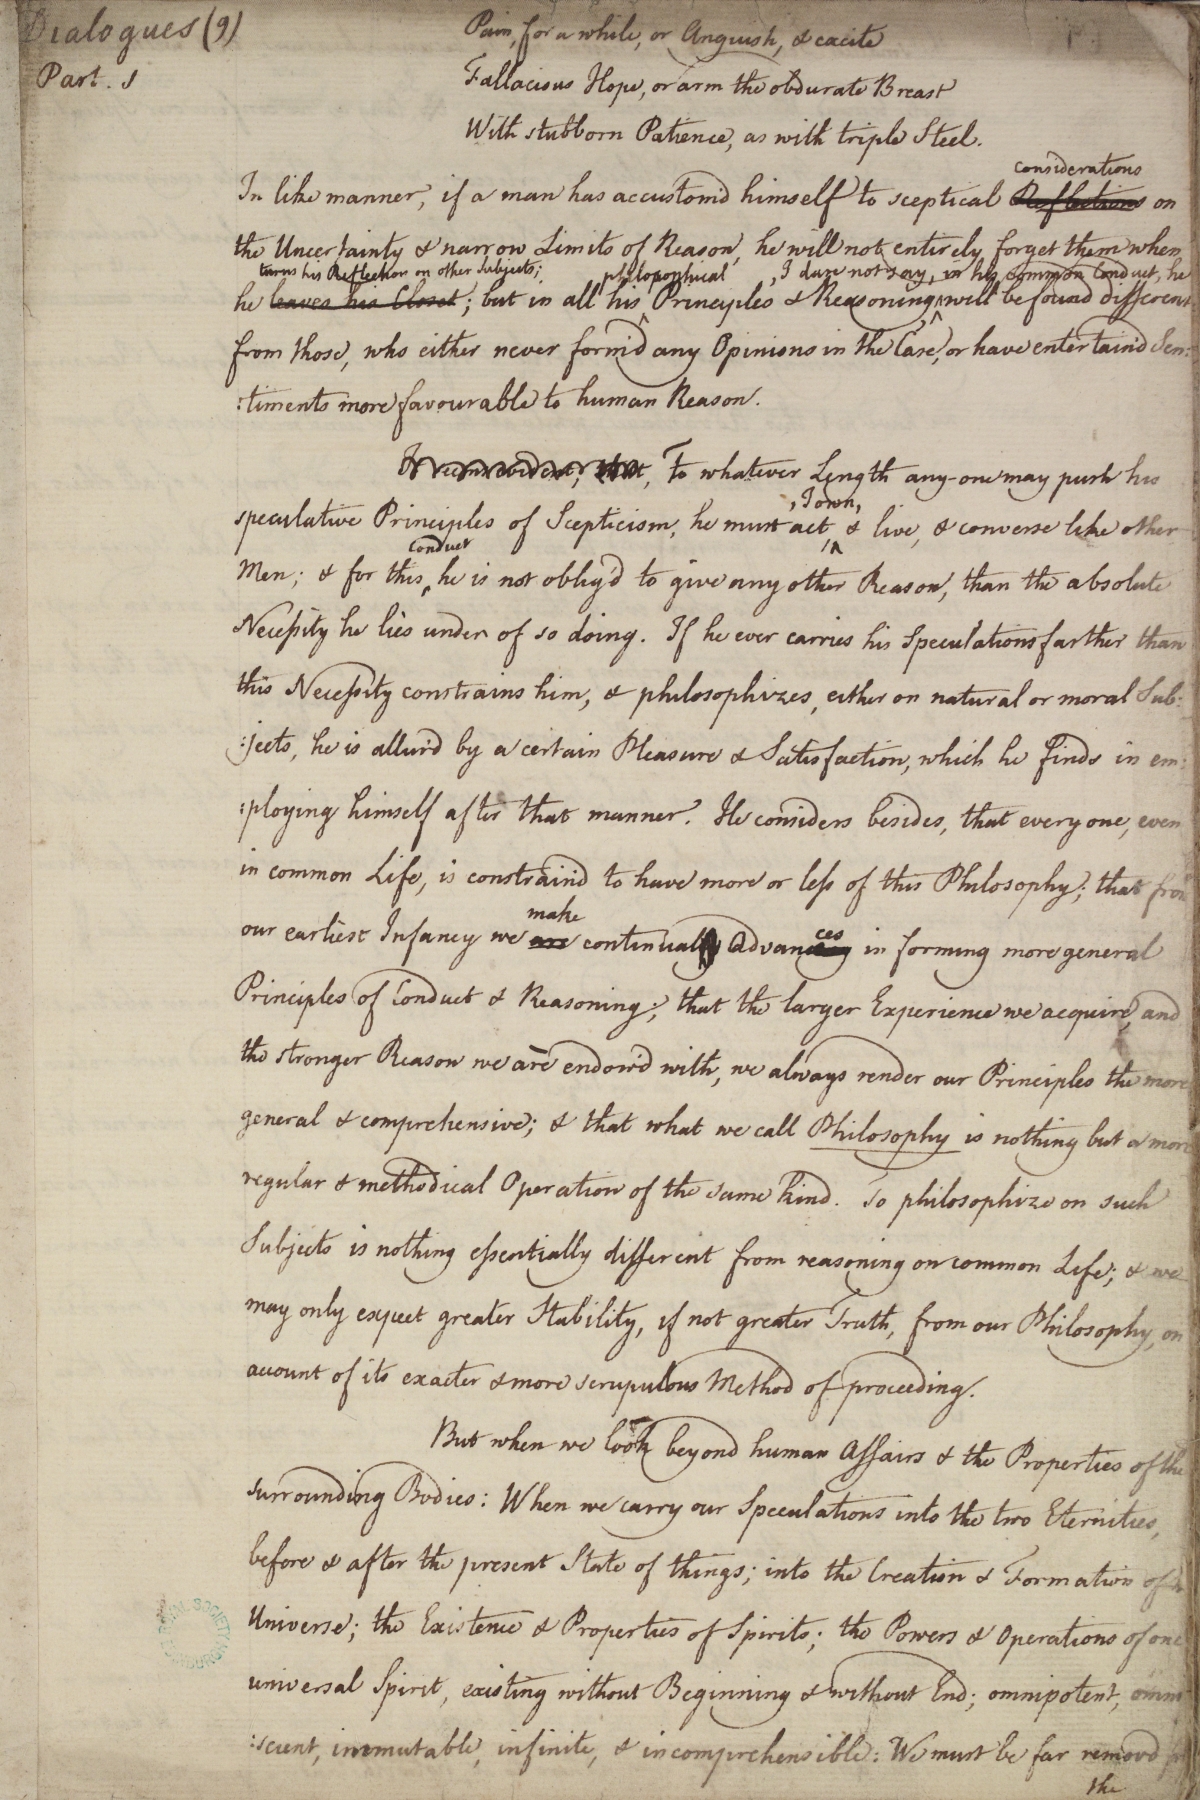 Dialogues (9)
Part. 1
Pain, for a while, or Anguish, & excite
Fallacious Hope, or arm the obdurate Breast
With stubborn Patience, as with triple Steel.
considerations
In like manner, if a man has accustom'd himself to sceptical Reflections on
the Uncertainty & narrow Limits of Reason, he will not entirely forget them when
turns his Reflection on other Subjects;
philosophical
, I dare not say, in his common Conduct, he
he leaves his Closet; but in all his Principles & Reasoning, will be found different
from those, who either never form'd any Opinions in the Case, or have entertain'd Sen:
:timents more favourable to human Reason.
To whatever Length any-one may push his
, I own,
speculative Principles of Scepticism, he must act & live, & converse like other
conduct
Men; & for this, he is not oblig'd to give any other Reason, than the absolute
Necessity he lies under of so doing. If he ever carries his Speculations farther than
this Necessity constrains him, & philosophizes, either on natural or moral Sub:
:jects, he is allur'd by a certain Pleasure & Satisfaction, which he finds in em:
:ploying himself after that manner. He considers besides, that every one, even
in common Life, is constrain'd to have more or less of this Philosophy; that from
make
ces
our earliest Infancy we are continual Advancing in forming more general
Principles of Conduct & Reasoning; that the larger Experience we acquire, and
the stronger Reason we are endow'd with, we always render our Principles the more
general & comprehensive; & that what we call Philosophy is nothing but a more
regular & methodical Operation of the same kind. To philosophize on such
Subjects is nothing essentially different from reasoning on common Life; & we
may only expect greater Stability, if not greater Truth, from our Philosophy, on
account of its exacter & more scrupulous Method of proceeding.
But when we look beyond human Affairs & the Properties of the
surrounding Bodies: When we carry our Speculations into the two Eternities,
before & after the present State of things; into the Creation & Formation of
Universe; the Existence & Properties of Spirits; the Powers & Operations of one
universal Spirit, existing without Beginning & without End; omnipotent, omni
:scient, immutable, infinite, & incomprehensible: We must be far remov'd
the